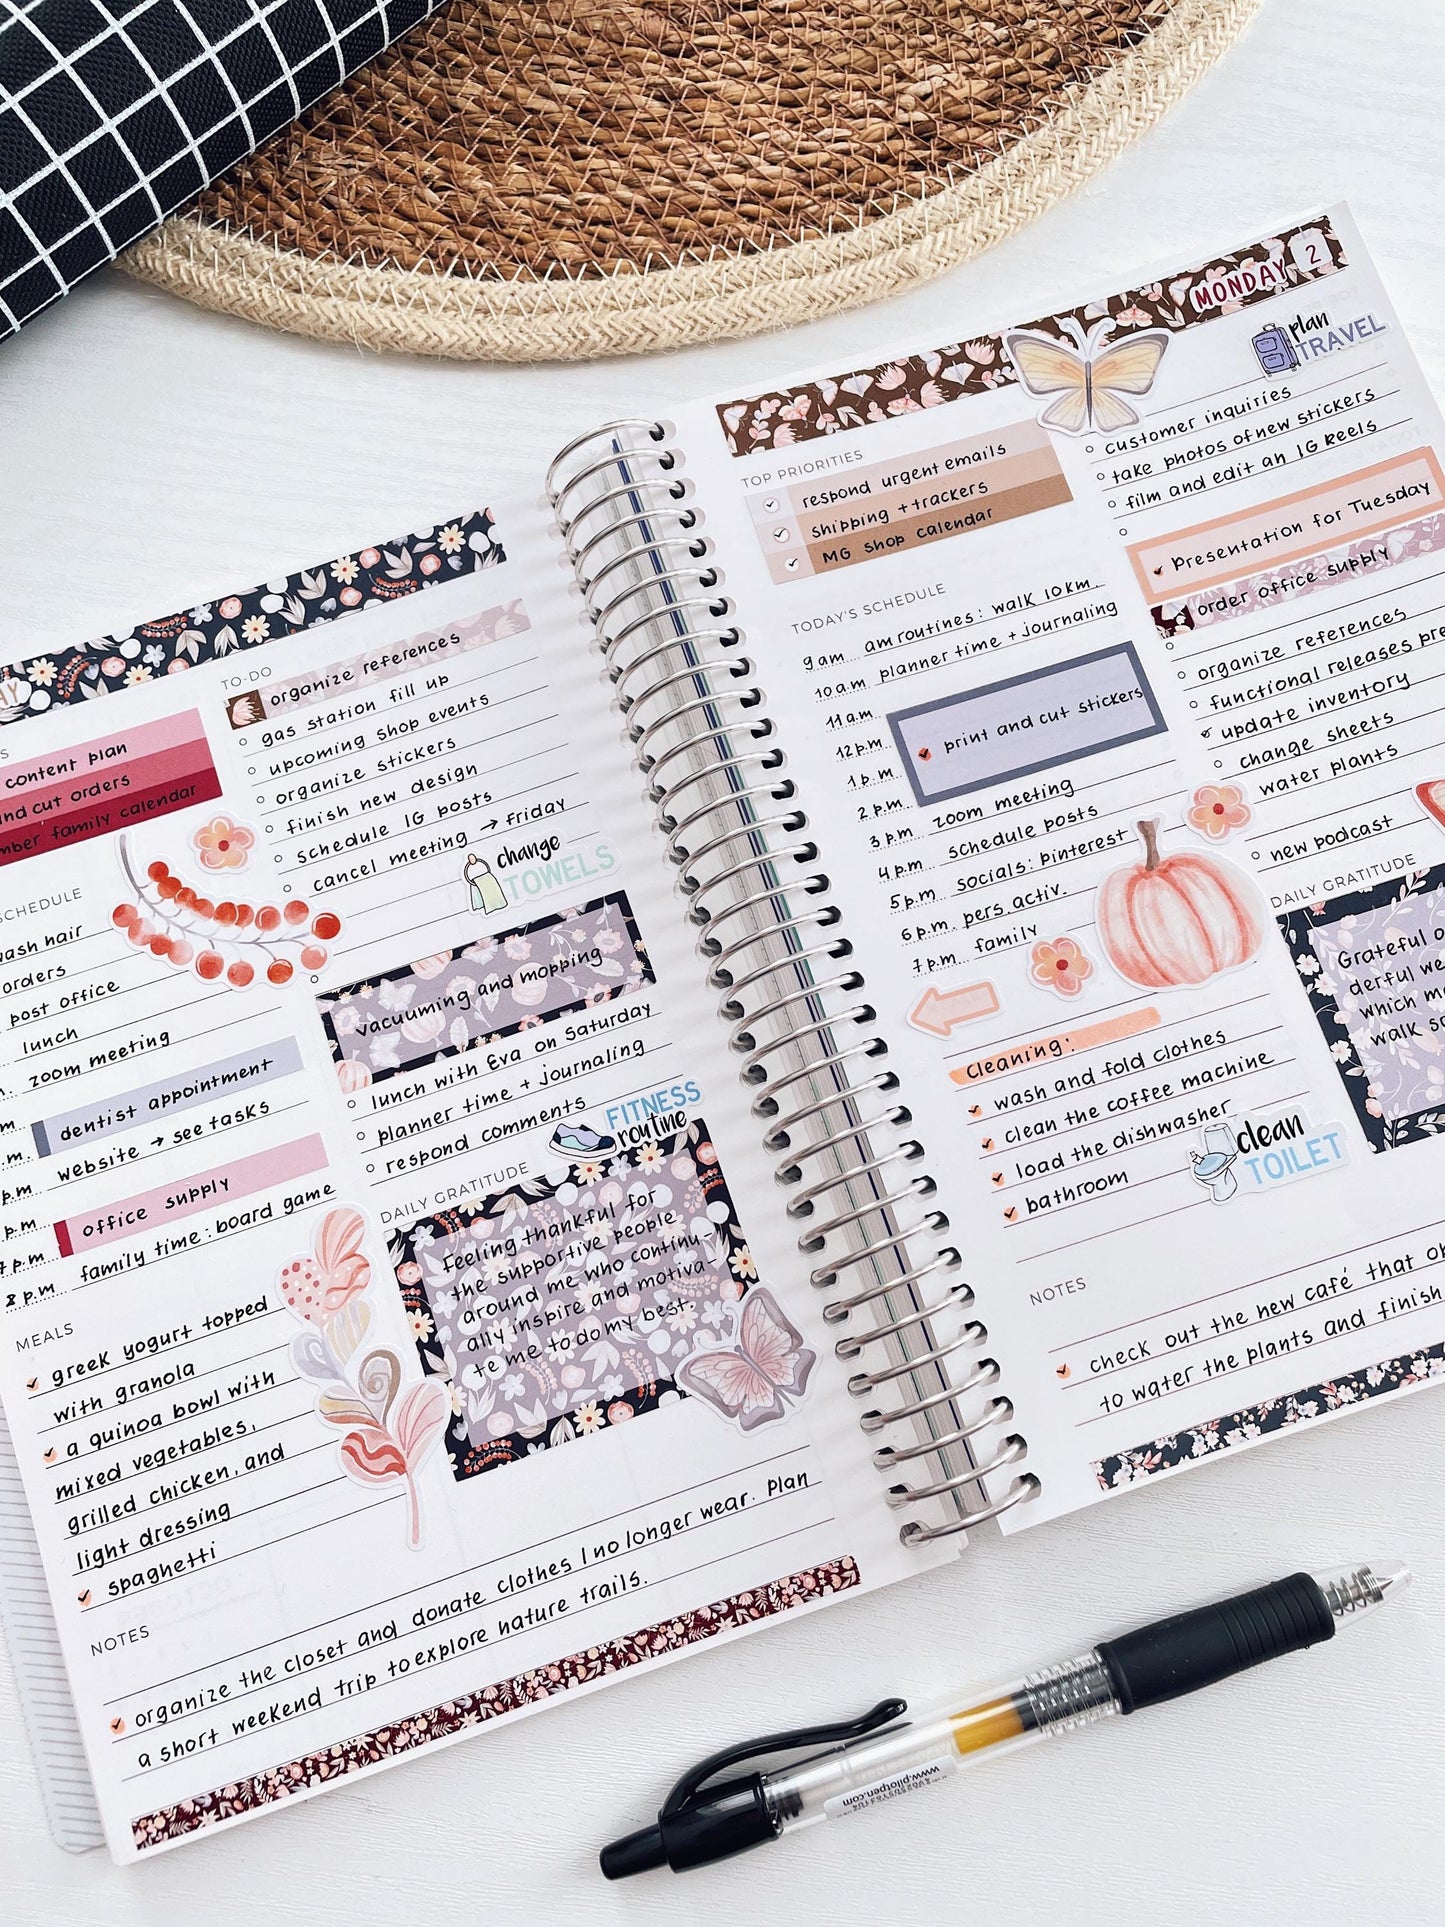 AY
content plan
nd cut orders
mber family calendar
SCHEDULE
ash hair
orders
post office
lunch
zoom meeting
dentist appointment
website → see tasks
office supply
family time: board game
8 p.m
MEALS
greek yogurt topped
with granola
a quinoa bowl with
mixed vegetables,
grilled chicken, and
light dressing
spaghetti
TO-DO
organize references
gas station fill up
upcoming shop events
organize stickers
finish new design
schedule IG posts
cancel meeting → friday
change
TOWELS
vacuuming and mopping
lunch with Eva on Saturday
planner time + journaling
respond comments
FITNESS
routine
DAILY GRATITUDE
Feeling thankful for
the supportive people
around me who continu-
ally inspire and motiva-
te me to do my best.
NOTES
organize the closet and donate clothes I no longer wear. Plan
a short weekend trip to explore nature trails.
MONDAY 2
TOP PRIORITIES
respond urgent emails
shipping + trackers
MG shop calendar
TODAY'S SCHEDULE
9 am am routines: walk 10km.
10 a.m planner time + journaling
11 a.m
12 p.m print and cut stickers
1 p.m
2 p.m
3 p.m zoom meeting
4 p.m schedule posts
5 p.m socials: pinterest
6 p.m. pers. activ.
7 p.m family
cleaning:
wash and fold clothes
clean the coffee machine
load the dishwasher
bathroom
clean
TOILET
plan
TRAVEL
customer inquiries
take photos of new stickers
film and edit an IG Reels
Presentation for Tuesday
order office supply
organize references
functional releases pre
update inventory
change sheets
water plants
new podcast
DAILY GRATITUDE
Grateful o
derful we
which m
walk s
NOTES
check out the new café that o
to water the plants and finish
www.pilotpen.com